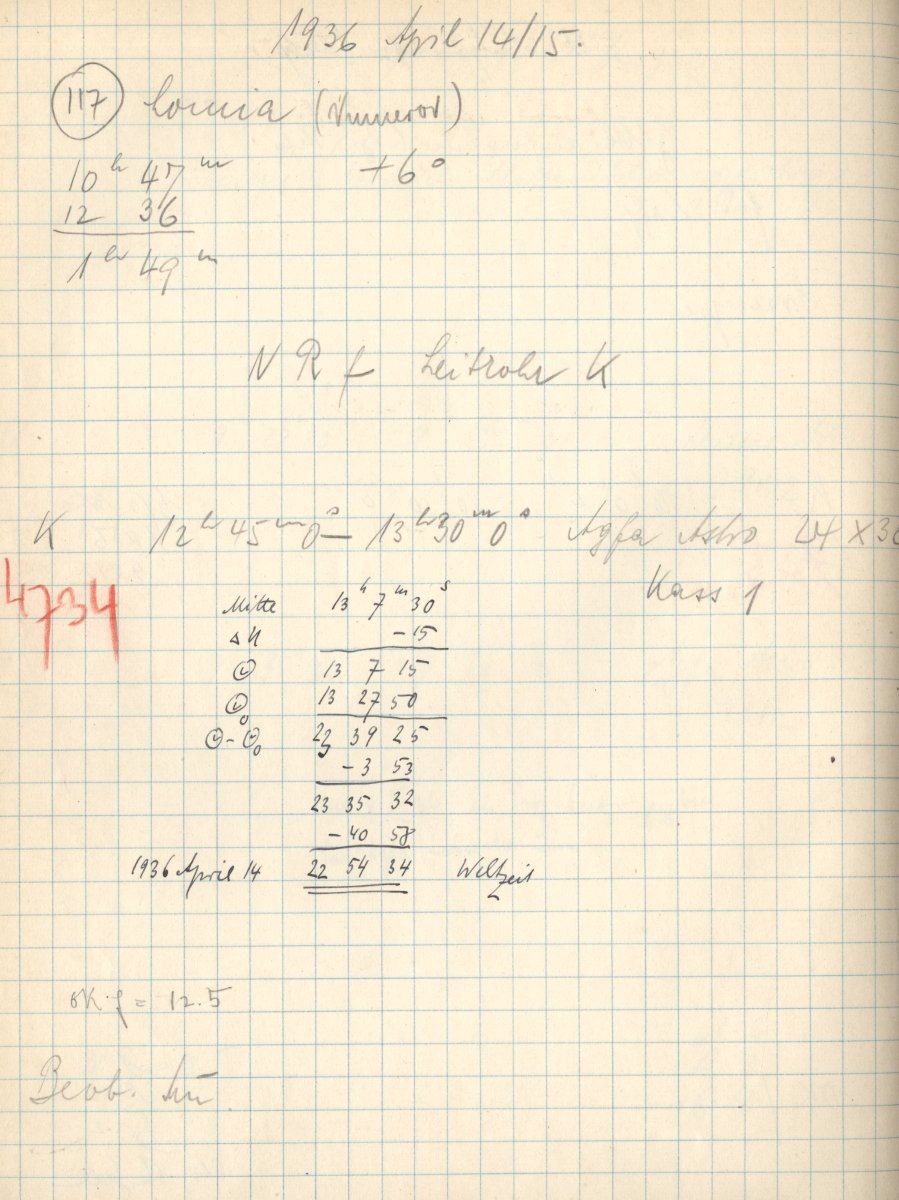 1936 April 14/15.
117 Lomia (Numerov)
10h 47m +6°
12 36
1h 49m
N R f Leitrohr K
K 12h 45m 0s — 13h 30m 0s Agfa Astro 24 x 30
4734 Kass 1
Mitte 13h 7m 30s
ΔU -15
☉ 13 7 15
☉0 13 27 50
☉-☉0 23 39 25
-3 53
23 35 32
-40 58
1936 April 14 22 54 34 Weltzeit
f = 12.5
Beob.